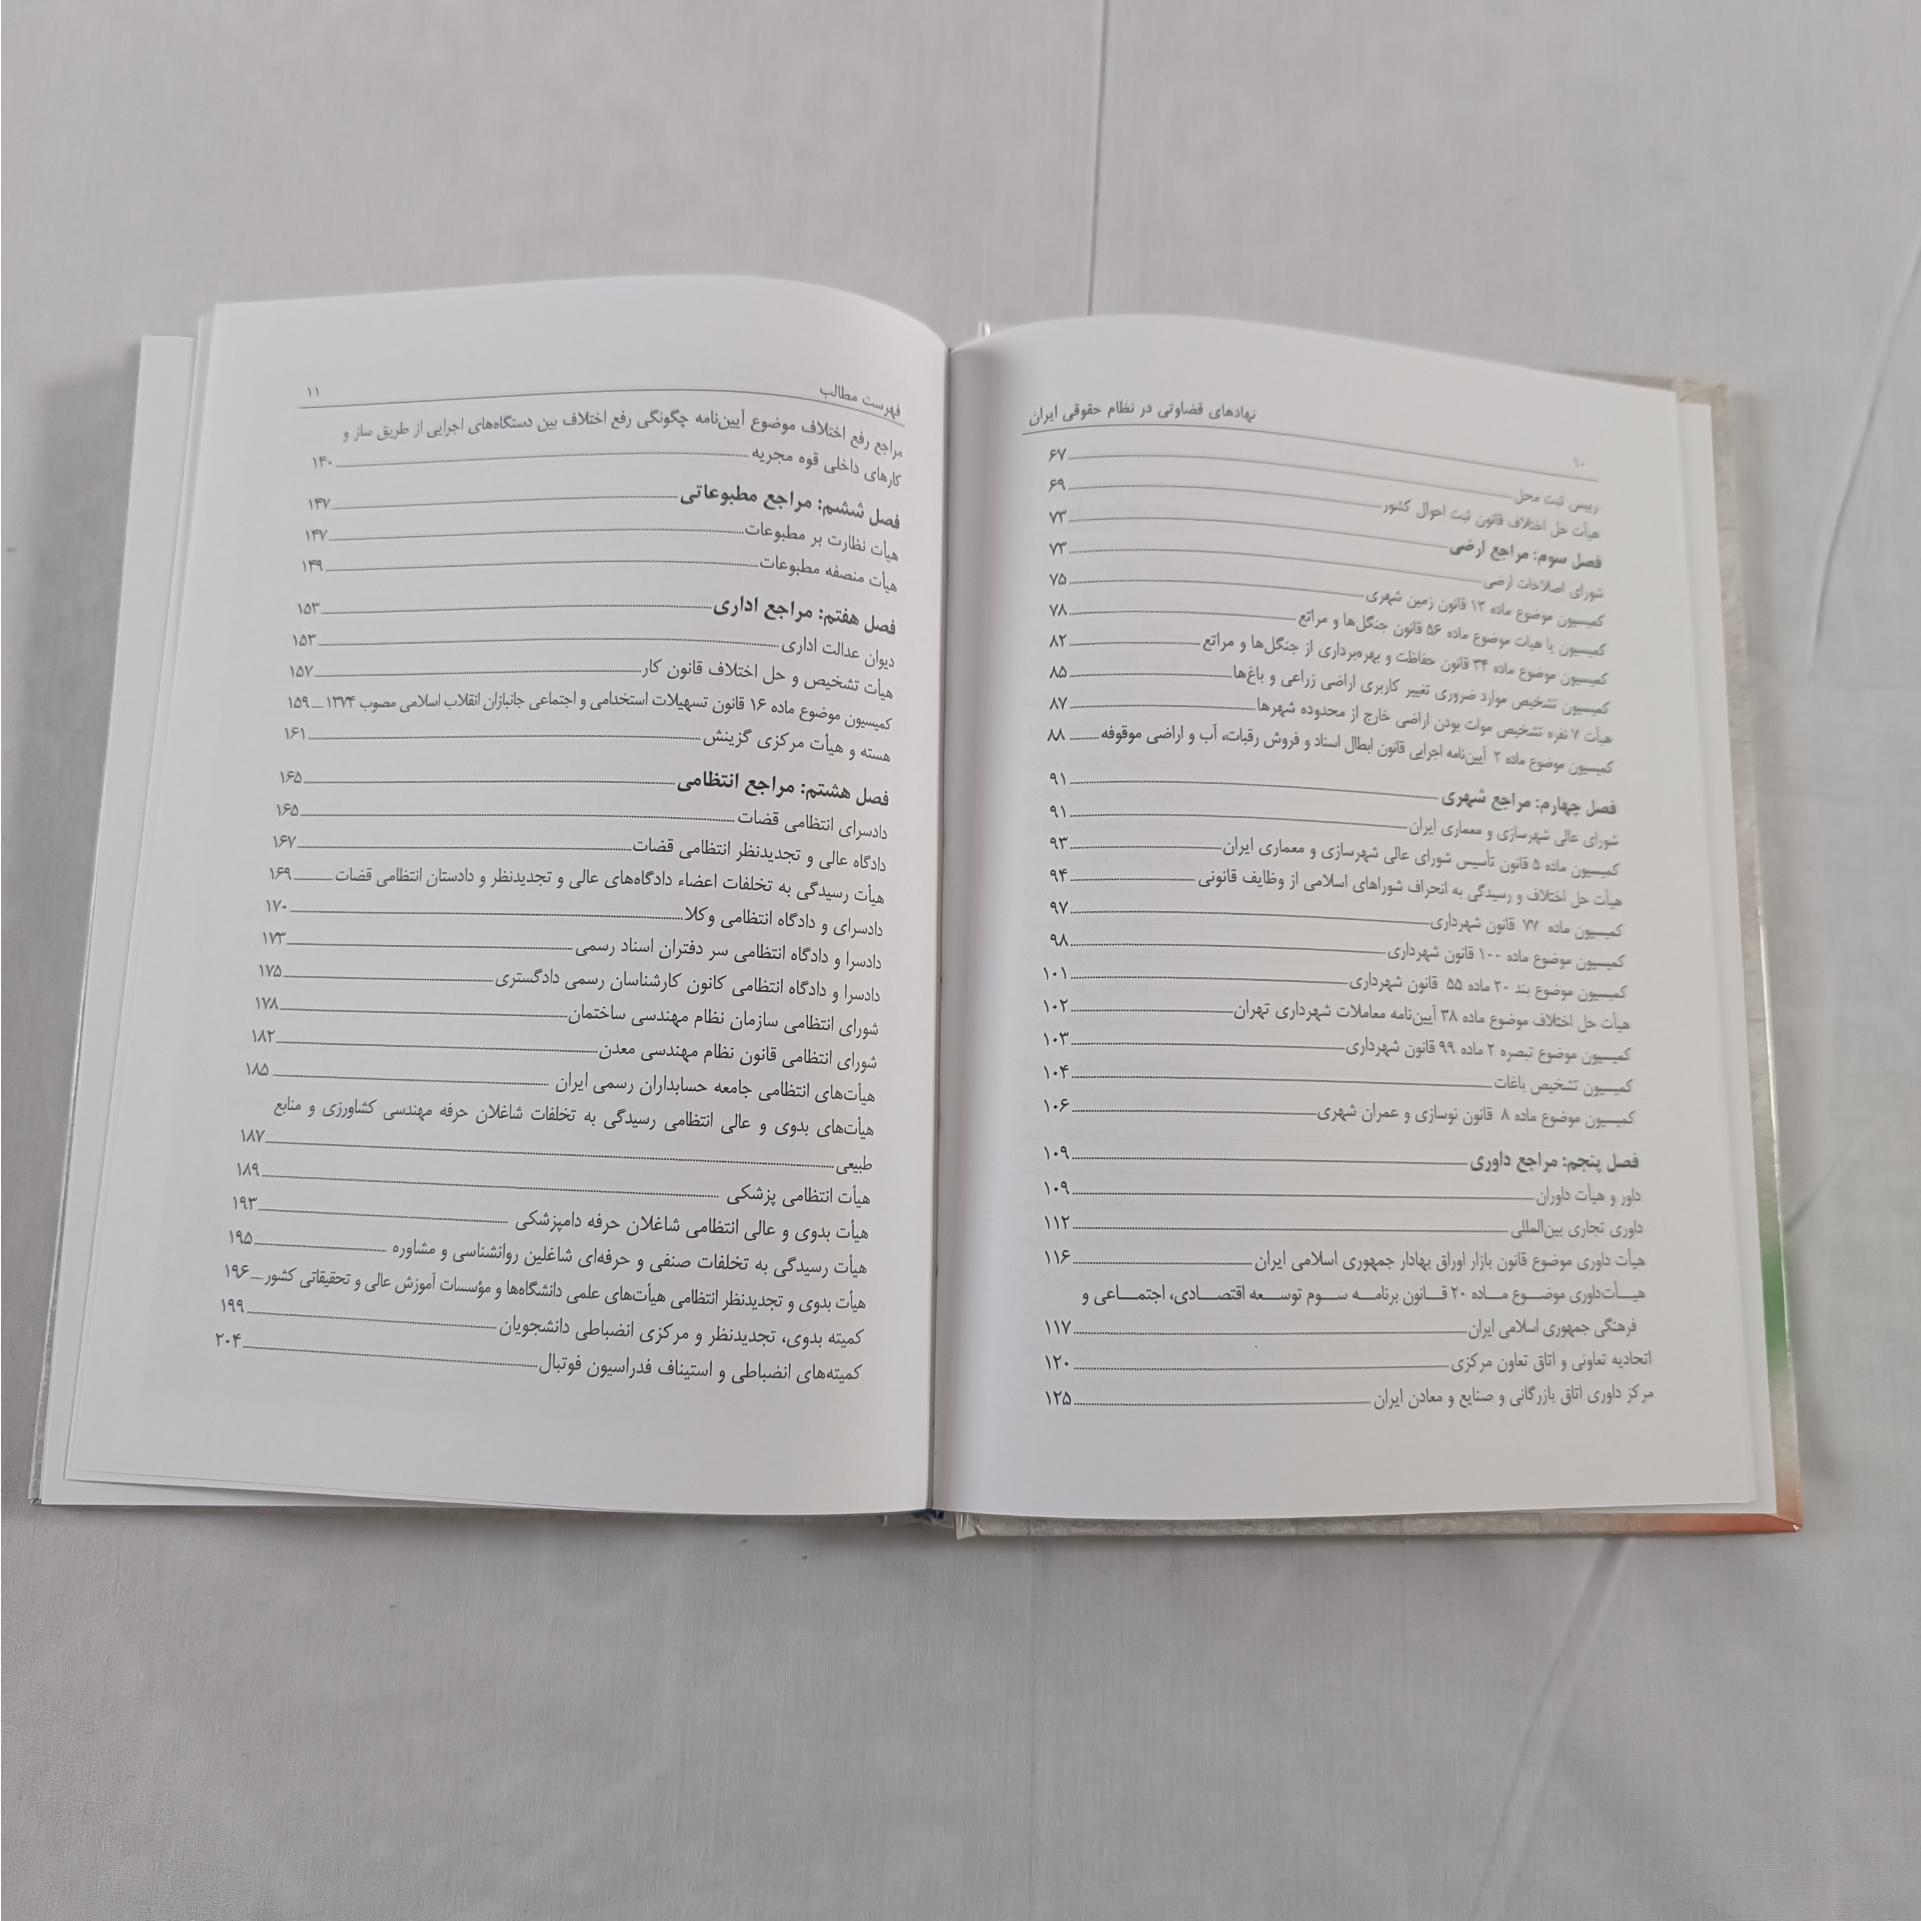 ۱۰
نهادهای قضاوتی در نظام حقوقی ایران
رییس ثبت محل ۶۷
هیأت حل اختلاف قانون ثبت احوال کشور ۶۹
فصل سوم: مراجع ارضی ۷۳
شورای اصلاحات ارضی ۷۳
کمیسیون موضوع ماده ۱۲ قانون زمین شهری ۷۵
کمیسیون یا هیات موضوع ماده ۵۶ قانون جنگل‌ها و مراتع ۷۸
کمیسیون موضوع ماده ۳۴ قانون حفاظت و بهره‌برداری از جنگل‌ها و مراتع ۸۲
کمیسیون تشخیص موارد ضروری تغییر کاربری اراضی زراعی و باغ‌ها ۸۵
هیأت ۷ نفره تشخیص موات بودن اراضی خارج از محدوده شهرها ۸۷
کمیسیون موضوع ماده ۲ آیین‌نامه اجرایی قانون ابطال اسناد و فروش رقبات، آب و اراضی موقوفه ۸۸
فصل چهارم: مراجع شهری ۹۱
شورای عالی شهرسازی و معماری ایران ۹۱
کمیسیون ماده ۵ قانون تأسیس شورای عالی شهرسازی و معماری ایران ۹۳
هیأت حل اختلاف و رسیدگی به انحراف شوراهای اسلامی از وظایف قانونی ۹۴
کمیسیون ماده ۷۷ قانون شهرداری ۹۷
کمیسیون موضوع ماده ۱۰۰ قانون شهرداری ۹۸
کمیسیون موضوع بند ۲۰ ماده ۵۵ قانون شهرداری ۱۰۱
هیأت حل اختلاف موضوع ماده ۳۸ آیین‌نامه معاملات شهرداری تهران ۱۰۲
کمیسیون موضوع تبصره ۲ ماده ۹۹ قانون شهرداری ۱۰۳
کمیسیون تشخیص باغات ۱۰۴
کمیسیون موضوع ماده ۸ قانون نوسازی و عمران شهری ۱۰۶
فصل پنجم: مراجع داوری ۱۰۹
داور و هیأت داوران ۱۰۹
داوری تجاری بین‌المللی ۱۱۲
هیأت داوری موضوع قانون بازار اوراق بهادار جمهوری اسلامی ایران ۱۱۶
هیـــأت‌داوری موضـــوع مـــاده ۲۰ قـــانون برنامـــه ســـوم توســـعه اقتصـــادی، اجتمـــاعی و
فرهنگی جمهوری اسلامی ایران ۱۱۷
اتحادیه تعاونی و اتاق تعاون مرکزی ۱۲۰
مرکز داوری اتاق بازرگانی و صنایع و معادن ایران ۱۲۵
فهرست مطالب ۱۱
مراجع رفع اختلاف موضوع آیین‌نامه چگونگی رفع اختلاف بین دستگاه‌های اجرایی از طریق ساز و
کارهای داخلی قوه مجریه ۱۴۰
فصل ششم: مراجع مطبوعاتی ۱۴۷
هیأت نظارت بر مطبوعات ۱۴۷
هیأت منصفه مطبوعات ۱۴۹
فصل هفتم: مراجع اداری ۱۵۳
دیوان عدالت اداری ۱۵۳
هیأت تشخیص و حل اختلاف قانون کار ۱۵۷
کمیسیون موضوع ماده ۱۶ قانون تسهیلات استخدامی و اجتماعی جانبازان انقلاب اسلامی مصوب ۱۳۷۴ ۱۵۹
هسته و هیأت مرکزی گزینش ۱۶۱
فصل هشتم: مراجع انتظامی ۱۶۵
دادسرای انتظامی قضات ۱۶۵
دادگاه عالی و تجدیدنظر انتظامی قضات ۱۶۷
هیأت رسیدگی به تخلفات اعضاء دادگاه‌های عالی و تجدیدنظر و دادستان انتظامی قضات ۱۶۹
دادسرای و دادگاه انتظامی وکلا ۱۷۰
دادسرا و دادگاه انتظامی سر دفتران اسناد رسمی ۱۷۳
دادسرا و دادگاه انتظامی کانون کارشناسان رسمی دادگستری ۱۷۵
شورای انتظامی سازمان نظام مهندسی ساختمان ۱۷۸
شورای انتظامی قانون نظام مهندسی معدن ۱۸۲
هیأت‌های انتظامی جامعه حسابداران رسمی ایران ۱۸۵
هیأت‌های بدوی و عالی انتظامی رسیدگی به تخلفات شاغلان حرفه مهندسی کشاورزی و منابع
طبیعی ۱۸۷
هیأت انتظامی پزشکی ۱۸۹
هیأت بدوی و عالی انتظامی شاغلان حرفه دامپزشکی ۱۹۳
هیأت رسیدگی به تخلفات صنفی و حرفه‌ای شاغلین روانشناسی و مشاوره ۱۹۵
هیأت بدوی و تجدیدنظر انتظامی هیأت‌های علمی دانشگاه‌ها و مؤسسات آموزش عالی و تحقیقاتی کشور ۱۹۶
کمیته بدوی، تجدیدنظر و مرکزی انضباطی دانشجویان ۱۹۹
کمیته‌های انضباطی و استیناف فدراسیون فوتبال ۲۰۴